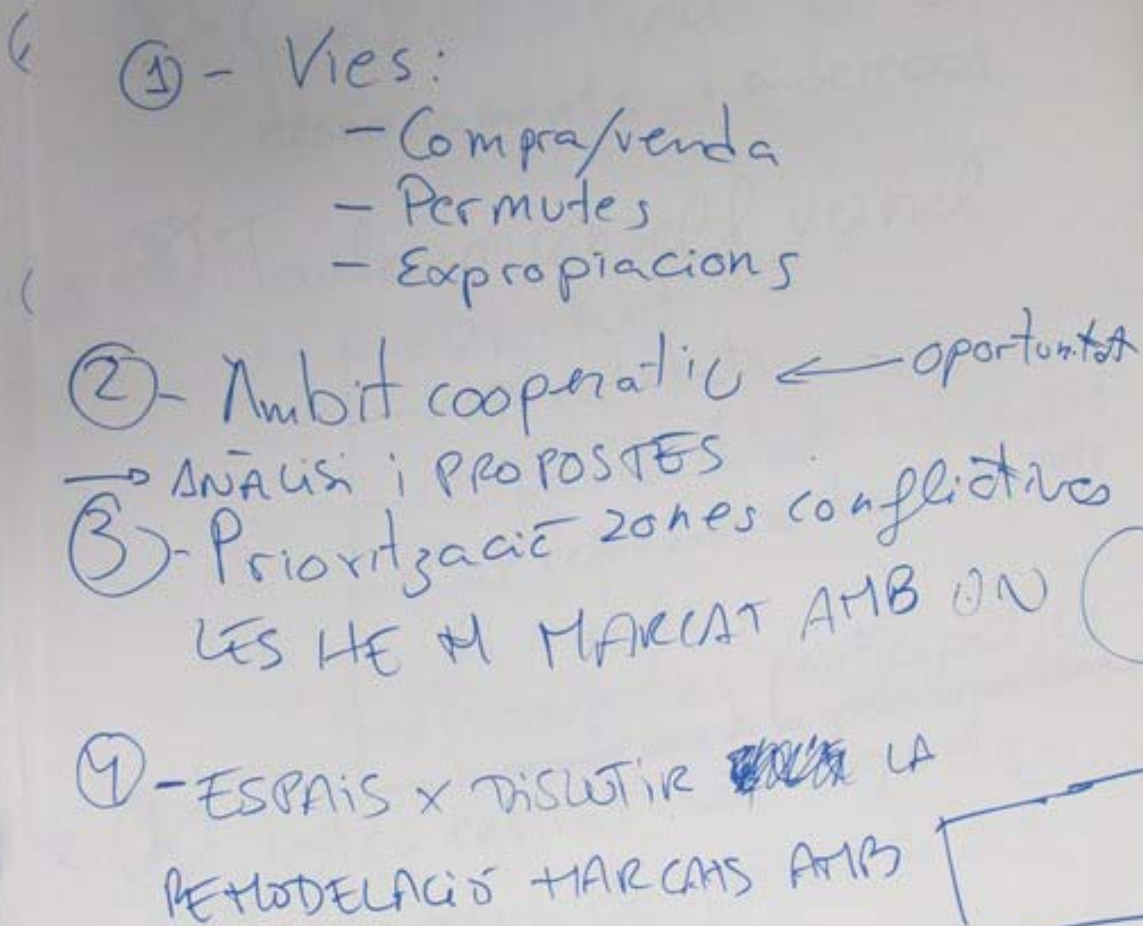 ① - Vies:
- Compra/venda
- Permutes
- Expropiacions
② - Àmbit cooperatiu ← oportunitat
→ ANÀLISI i PROPOSTES
③ - Priorització zones conflictives
LES HEM MARCAT AMB UN
④ - ESPAIS x DISCUTIR LA
REMODELACIÓ MARCATS AMB